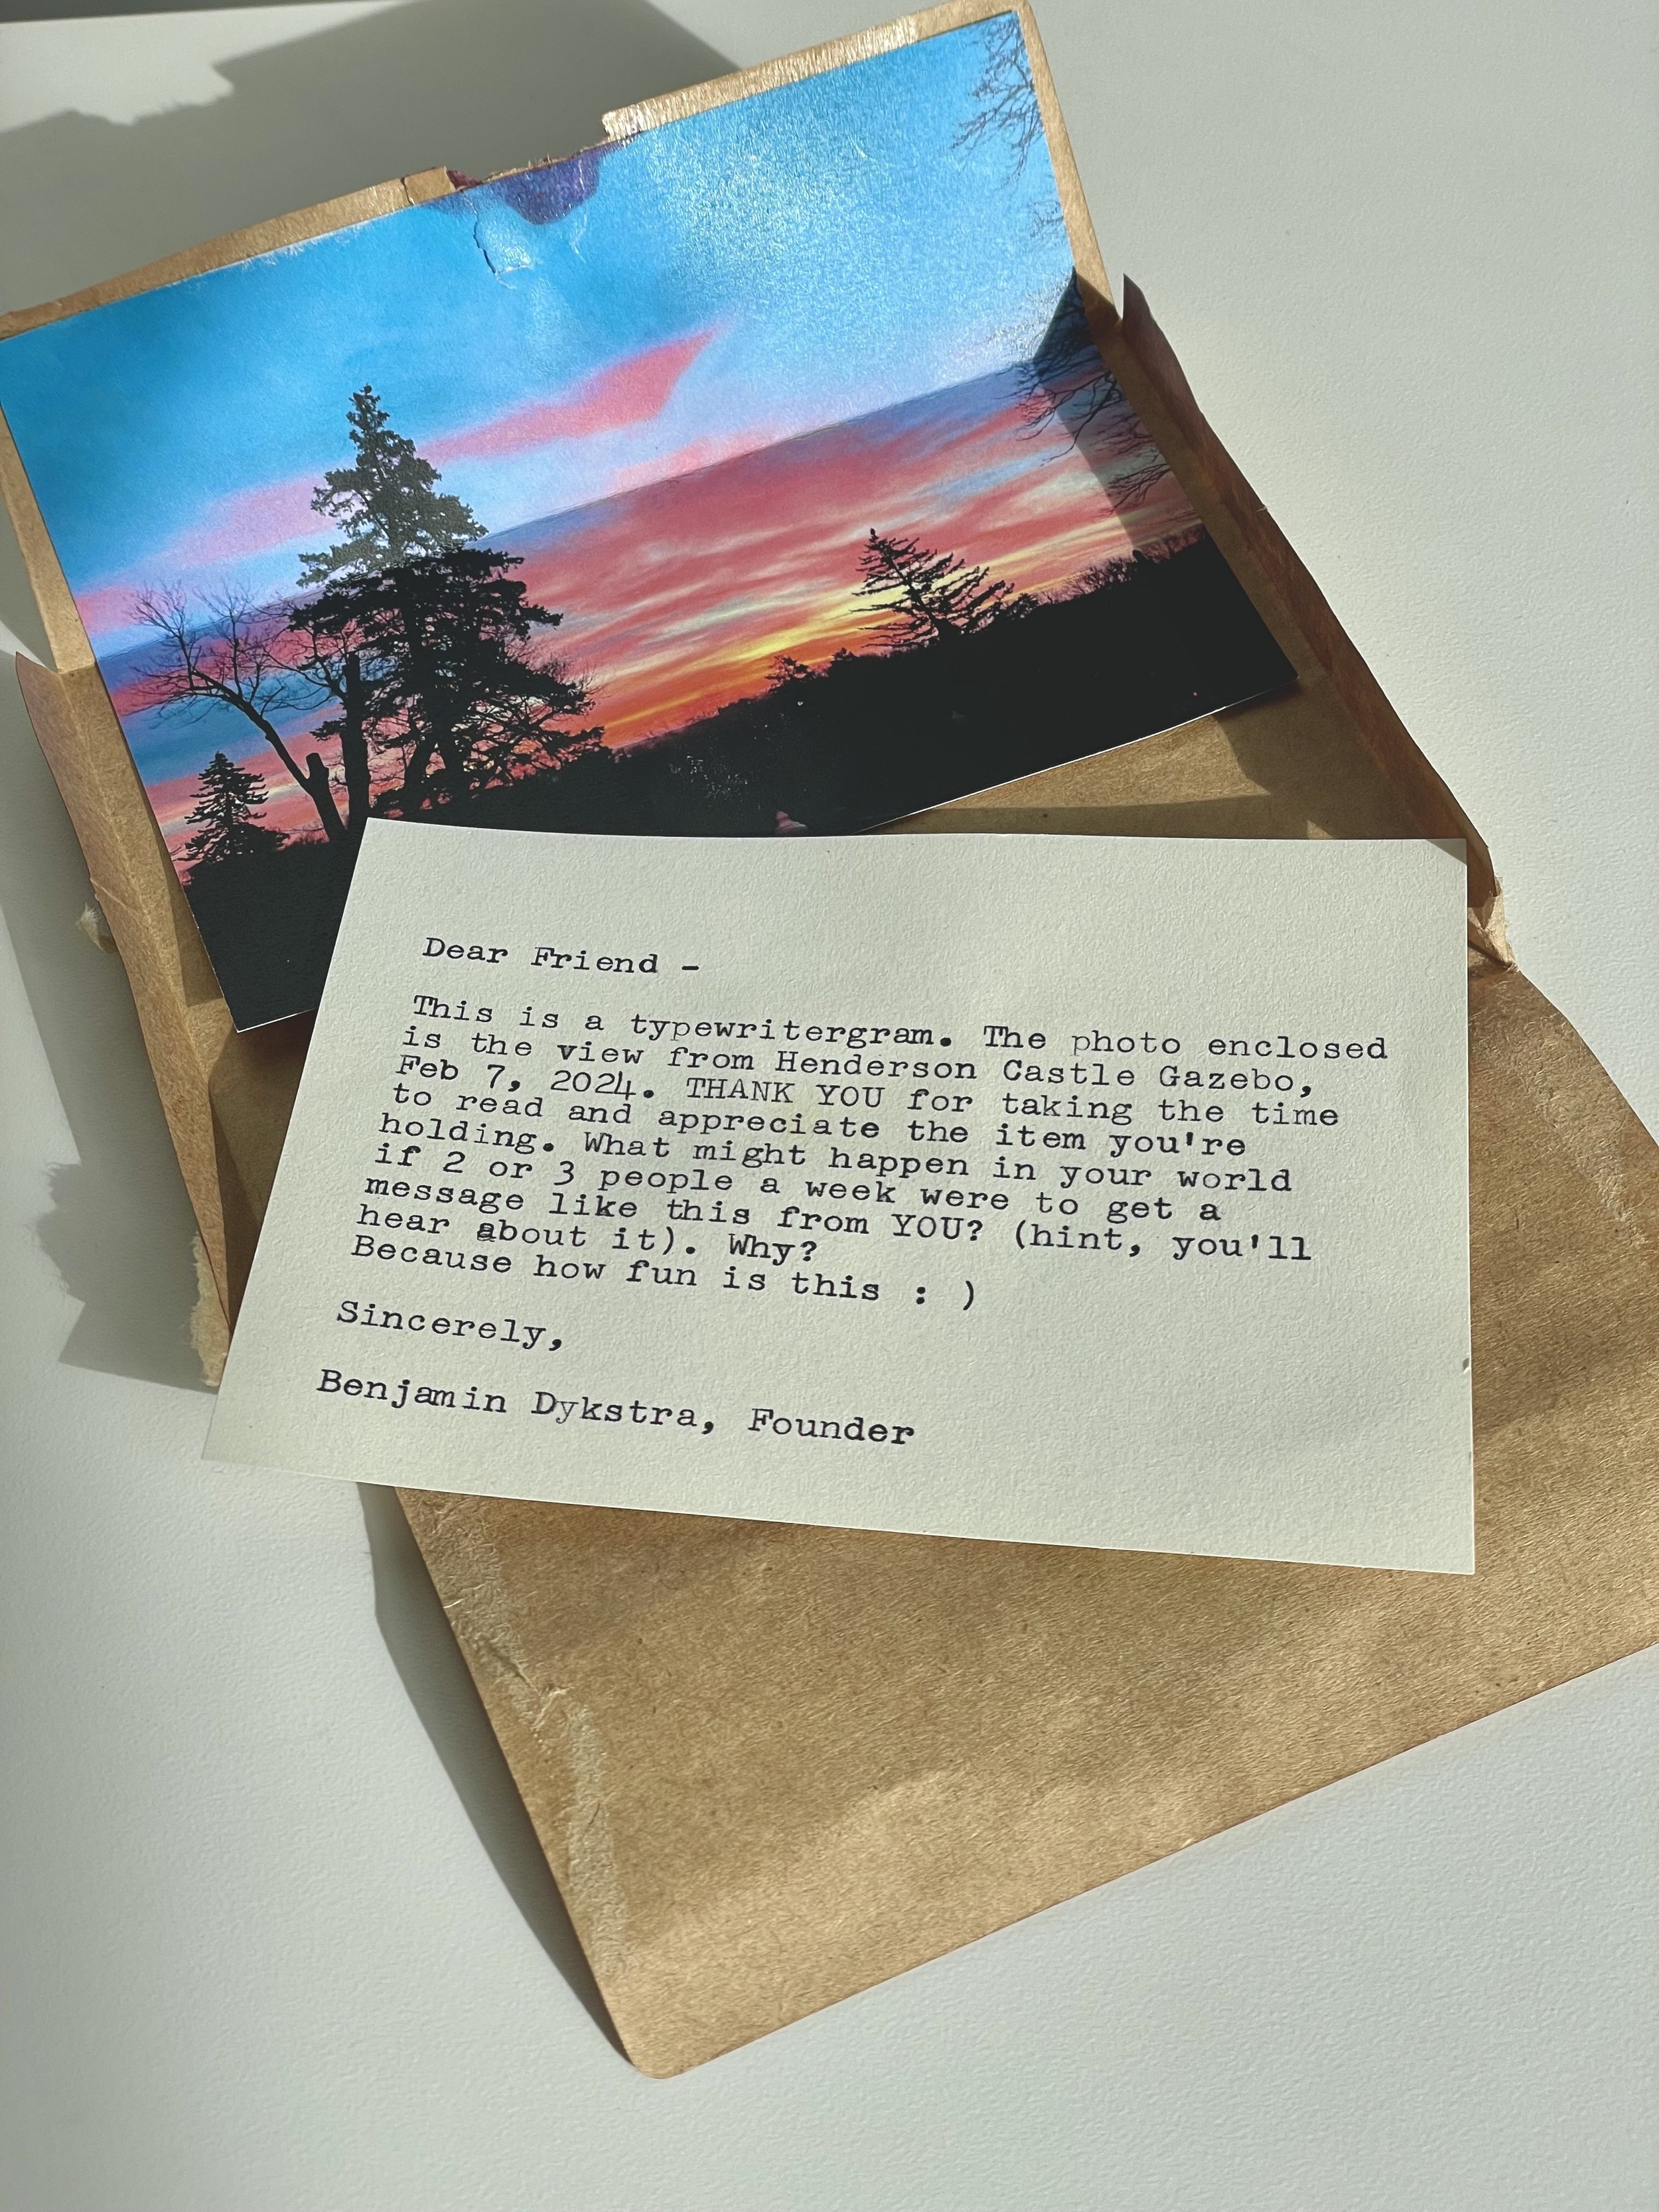 Dear Friend -
This is a typewritergram. The photo enclosed
is the view from Henderson Castle Gazebo,
Feb 7, 2024. THANK YOU for taking the time
to read and appreciate the item you're
holding. What might happen in your world
if 2 or 3 people a week were to get a
message like this from YOU? (hint, you'll
hear about it). Why?
Because how fun is this : )
Sincerely,
Benjamin Dykstra, Founder